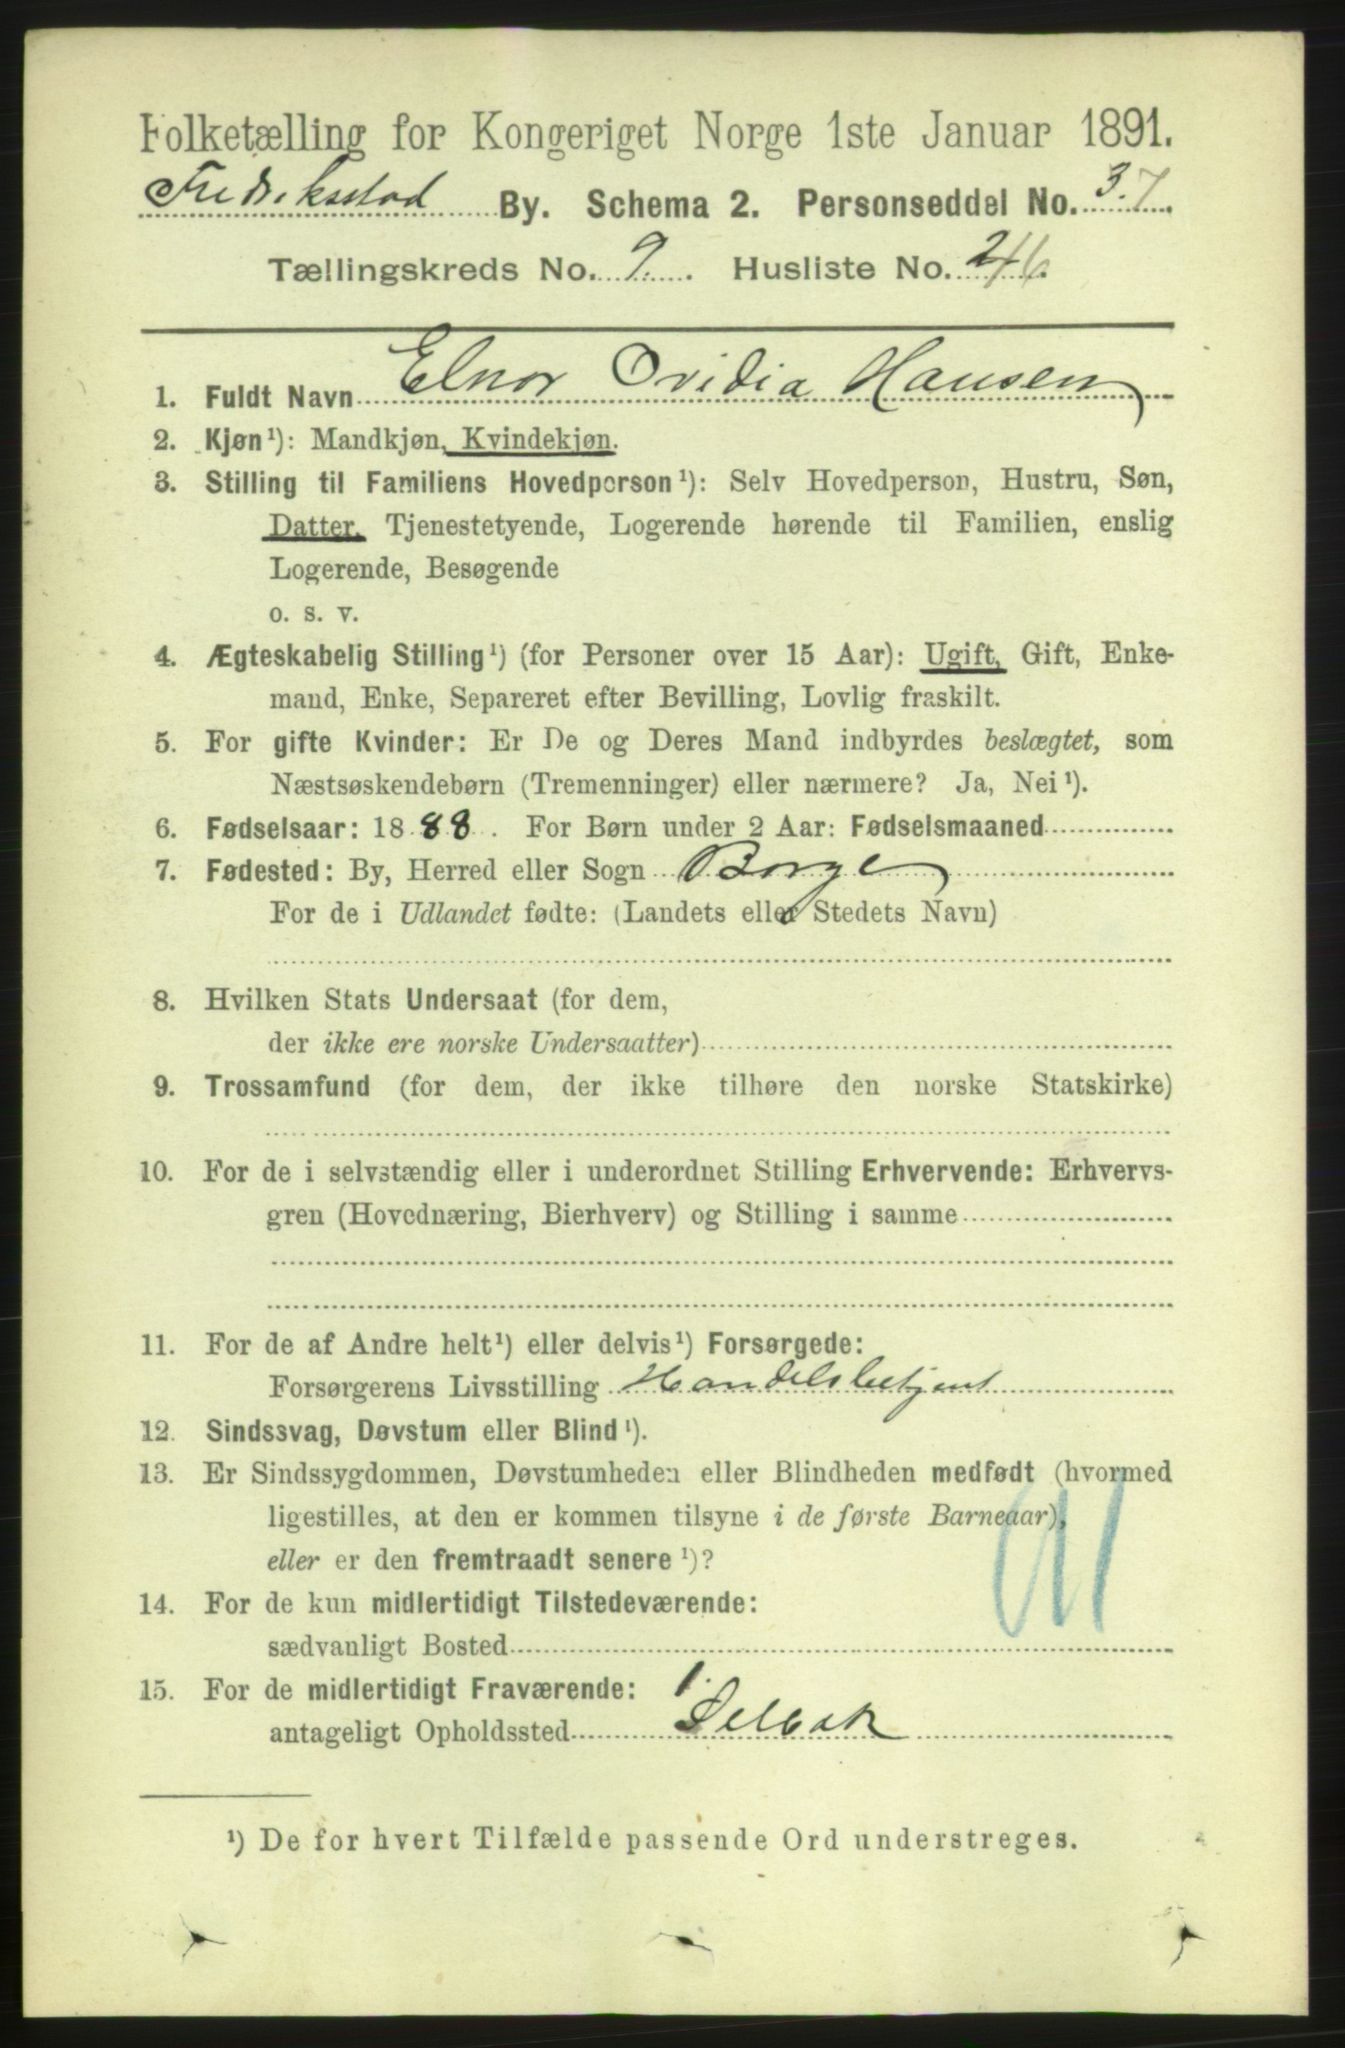 Folketælling for Kongeriget Norge 1ste Januar 1891.
Fredriksstad By. Schema 2. Personseddel No. 37
Tællingskreds No. 9. Husliste No. 246.
1. Fuldt Navn Elnor Ovidia Hansen
2. Kjøn¹): Mandkjøn, Kvindekjøn.
3. Stilling til Familiens Hovedperson¹): Selv Hovedperson, Hustru, Søn,
Datter, Tjenestetyende, Logerende hørende til Familien, enslig
Logerende, Besøgende
o. s. v.
4. Ægteskabelig Stilling¹) (for Personer over 15 Aar): Ugift, Gift, Enke-
mand, Enke, Separeret efter Bevilling, Lovlig fraskilt.
5. For gifte Kvinder: Er De og Deres Mand indbyrdes beslægtet, som
Næstsøskendebørn (Tremenninger) eller nærmere? Ja, Nei¹).
6. Fødselsaar: 1888. For Børn under 2 Aar: Fødselsmaaned
7. Fødested: By, Herred eller Sogn Borge
For de i Udlandet fødte: (Landets eller Stedets Navn)
8. Hvilken Stats Undersaat (for dem,
der ikke ere norske Undersaatter)
9. Trossamfund (for dem, der ikke tilhøre den norske Statskirke)
10. For de i selvstændig eller i underordnet Stilling Erhvervende: Erhvervs-
gren (Hovednæring, Bierhverv) og Stilling i samme
11. For de af Andre helt¹) eller delvis¹) Forsørgede:
Forsørgerens Livsstilling Handelsbetjent
12. Sindssvag, Døvstum eller Blind¹).
13. Er Sindssygdommen, Døvstumheden eller Blindheden medfødt (hvormed
ligestilles, at den er kommen tilsyne i de første Barneaar),
eller er den fremtraadt senere¹)?
14. For de kun midlertidigt Tilstedeværende:
sædvanligt Bosted
15. For de midlertidigt Fraværende:
antageligt Opholdssted Selbak
¹) De for hvert Tilfælde passende Ord understreges.